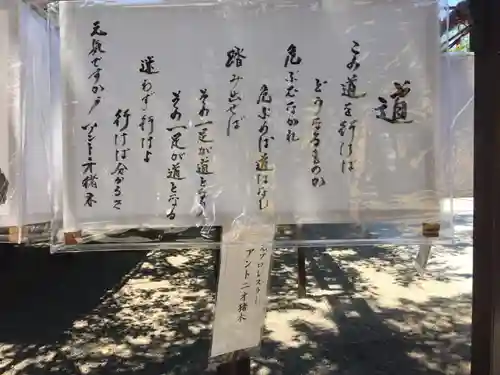 道
この道を行けば
どうなるものか
危ぶむなかれ
危ぶめば道はなし
踏み出せば
その一足が道となり
その一足が道となる
迷わず行けよ
行けば分かるさ
元気ですか!
アントニオ猪木
元プロレスラー
アントニオ猪木